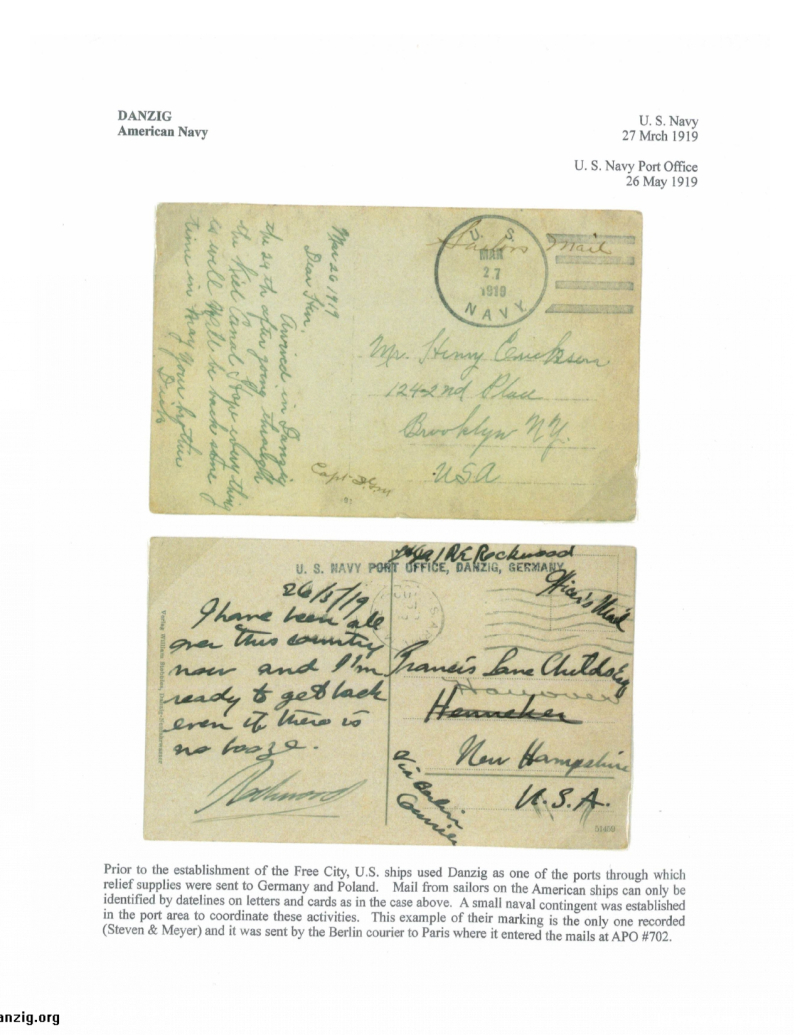 DANZIG
American Navy
U. S. Navy
27 Mrch 1919
U. S. Navy Port Office
26 May 1919
Mar 26 1919
Dear Hen.
Arrived in Danzig
the 24th after going through
the Kiel Canal Hope everything
is well Will be back some
time in May Your brother
Dick
Sailors Mail
U. S.
MAR
27
1919
NAVY
Mr. Henry Erickson
124-2nd Place
Brooklyn N.Y.
USA
Capt
R E Rockwood
U. S. NAVY PORT OFFICE, DANZIG, GERMANY
Officer's Mail
26/5/19
I have been all
over this country
now and I'm
ready to get back
even if there is
no booze.
Rockwood
Francis Lane Childs
Hanover
Henneker
New Hampshire
U.S.A.
Via Berlin
Courier
51459
Prior to the establishment of the Free City, U.S. ships used Danzig as one of the ports through which
relief supplies were sent to Germany and Poland. Mail from sailors on the American ships can only be
identified by datelines on letters and cards as in the case above. A small naval contingent was established
in the port area to coordinate these activities. This example of their marking is the only one recorded
(Steven & Meyer) and it was sent by the Berlin courier to Paris where it entered the mails at APO #702.
anzig.org